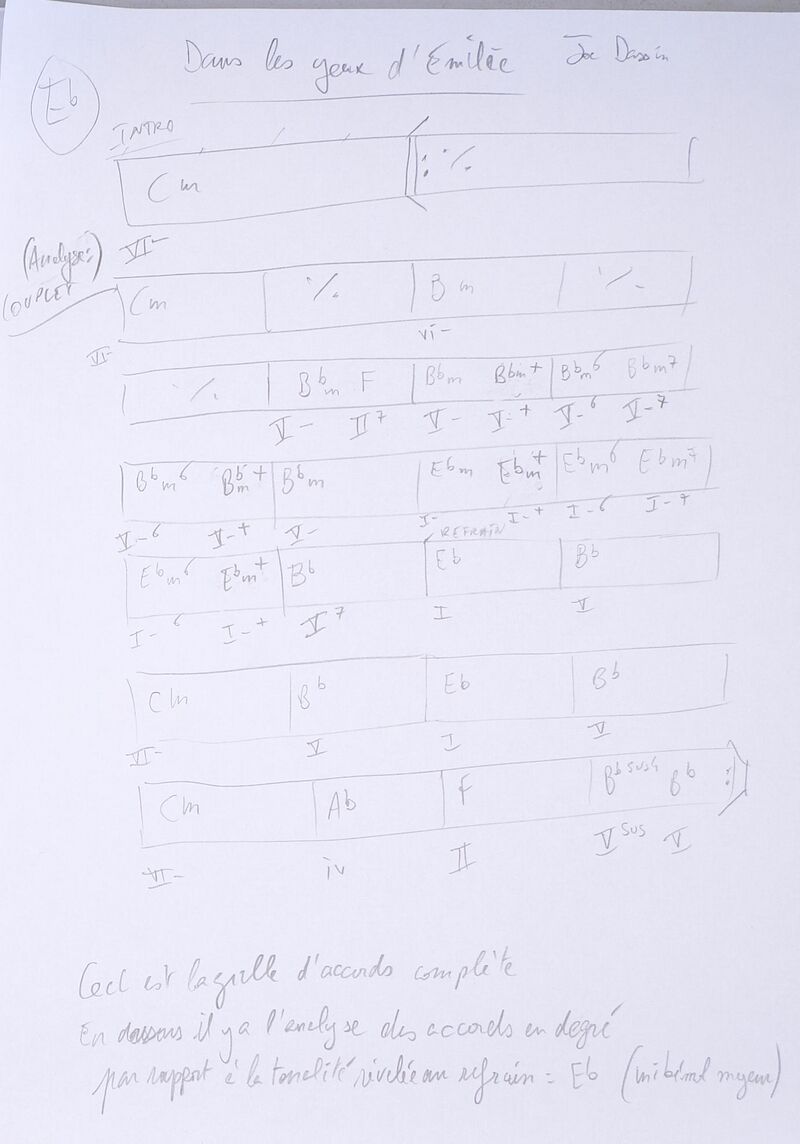 Dans les yeux d'Emilie Joe Dassin
Eb
INTRO
Cm :٪
VI-
(Analyse:)
COUPLET
Cm ٪ Bm ٪
VI- vi-
٪ Bbm F Bbm Bbm+ Bbm6 Bbm7
V- II7 V- V-+ V-6 V-7
Bbm6 Bbm+ Bbm Ebm Ebm+ Ebm6 Ebm7
V-6 V-+ V- I- I-+ I-6 I-7
REFRAIN
Ebm6 Ebm+ Bb Eb Bb
I-6 I-+ V7 I V
Cm Bb Eb Bb
VI- V I V
Cm Ab F Bbsus4 Bb :
VI- iv II Vsus V
Ceci est la grille d'accords complète
En dessous il y a l'analyse des accords en degré
par rapport à la tonalité révélée au refrain = Eb (mi bémol majeur)